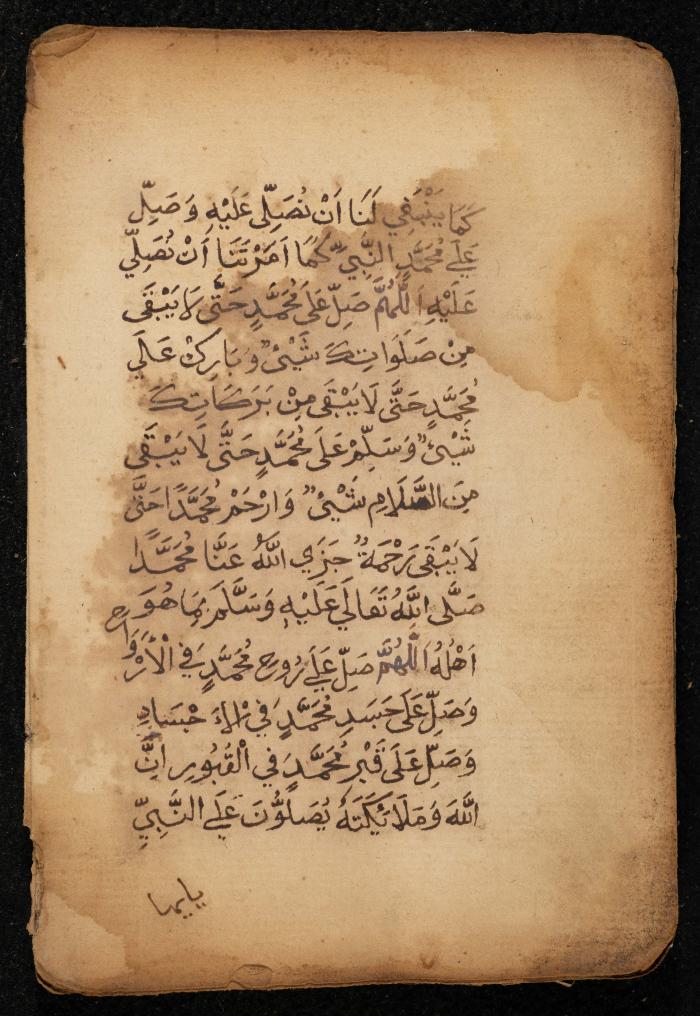 كَمَا يَنْبَغِي لَنَا اَنْ نُصَلِّى عَلَيْهِ وَصَلِّ
عَلَي مُحَمَّدٍ النَّبِيِّ كَمَا اَمَرْتَنَا اَنْ نُصَلِّي
عَلَيْهِ اَللّٰهُمَّ صَلِّ عَلَى مُحَمَّدٍ حَتَّى لَا يَبْقَى
مِنْ صَلَوَاتِكَ شَيْئٌ وَبَارِكْ عَلَي
مُحَمَّدٍ حَتَّى لَا يَبْقَى مِنْ بَرَكَاتِكَ
شَيْئٌ وَسَلِّمْ عَلَى مُحَمَّدٍ حَتَّى لَا يَبْقَى
مِنَ السَّلَامِ شَيْئٌ وَارْحَمْ مُحَمَّدًا حَتَّى
لَا يَبْقَى رَحْمَةٌ جَزَي اللّٰهُ عَنَّا مُحَمَّدًا
صَلَّى اللّٰهُ تَعَالَي عَلَيْهِ وَسَلَّمَ بِمَا هُوَ
اَهْلُهُ اَللّٰهُمَّ صَلِّ عَلَي رُوحِ مُحَمَّدٍ فِي الْاَرْوَاحِ
وَصَلِّ عَلَى جَسَدِ مُحَمَّدٍ فِي
وَصَلِّ عَلَى قَبْرِ مُحَمَّدٍ فِي الْقُبُورِ اِنَّ
اللّٰهَ وَمَلَائِكَتَهُ يُصَلُّوْنَ عَلَي النَّبِيِّ
يايها